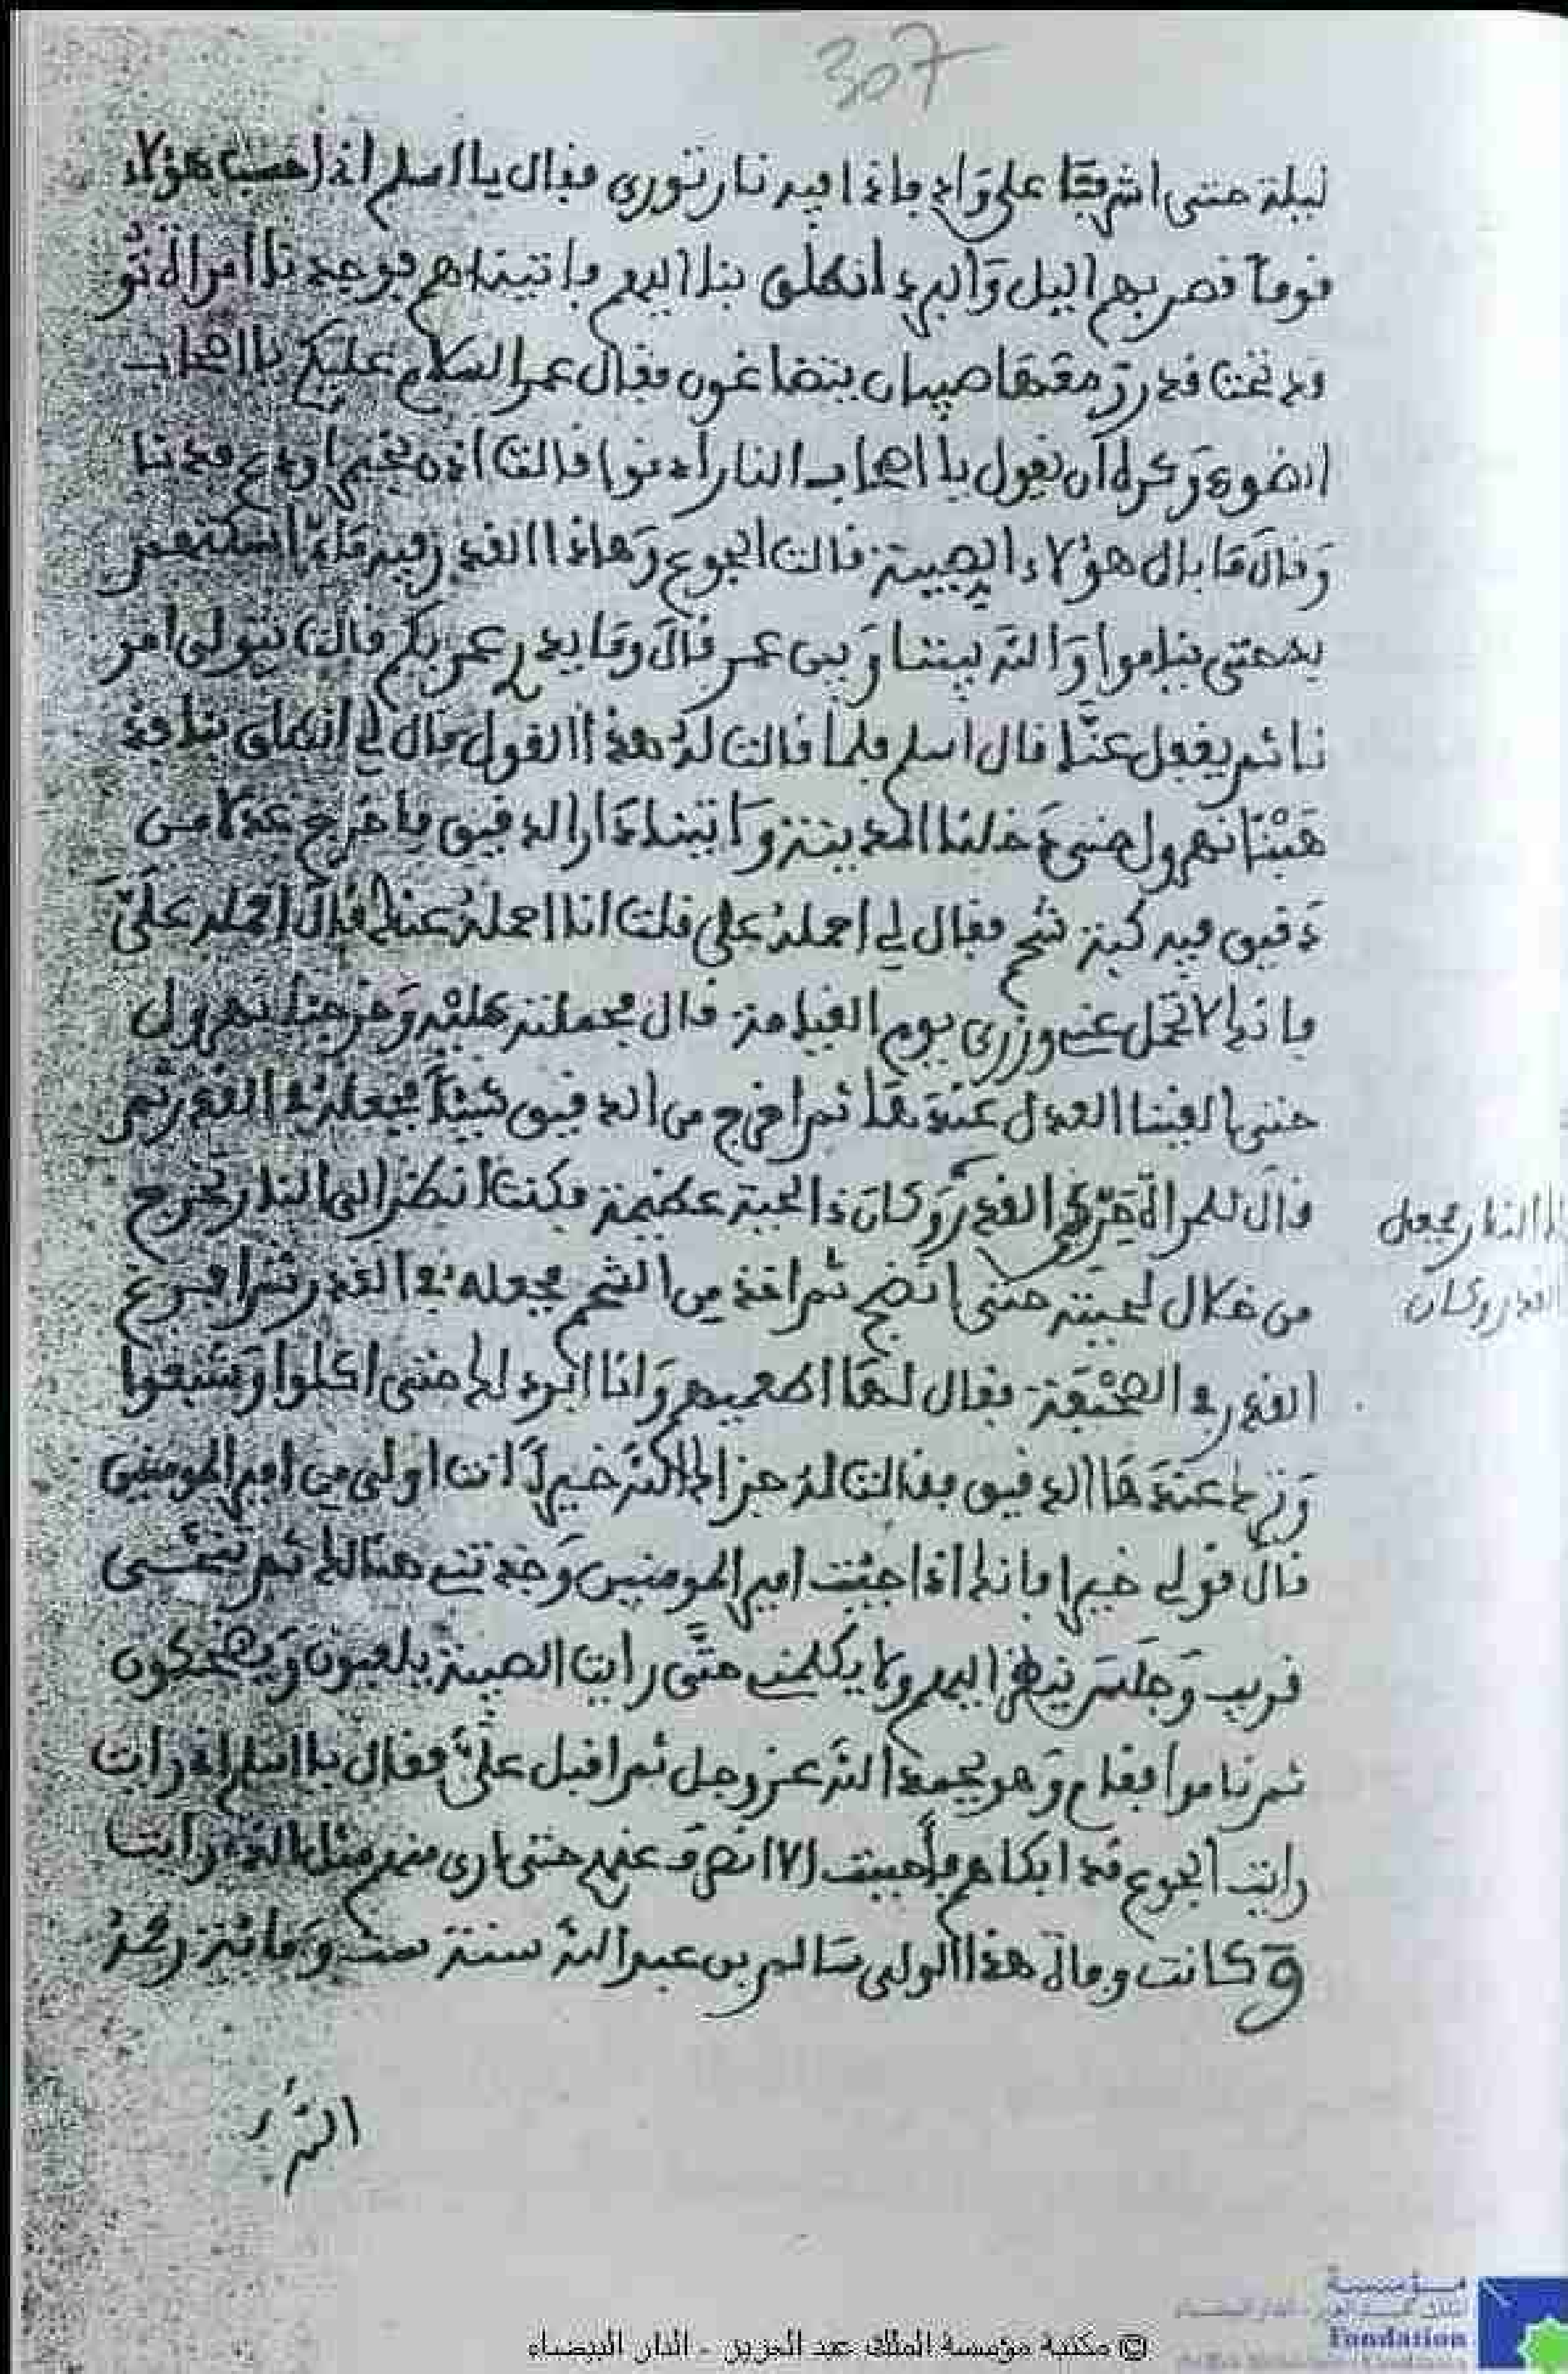 307
ليلة حتى اشرفنا على واد فاذا فيه نار توری فقال يا اسلم اني احسب هؤلاء
قوما قصر بهم اليل والبرد انطلق بنا اليهم فاتيناهم فوجدنا امراة تو
قد تحت قدر ومعها صبيان يتضاغون فقال عمر السلام عليكم يا اصحاب
الضوء وكره ان يقول يا اصحاب النار ادنوا قالت اذن بخير اودع فدنا
وقال ما بال هؤلاء الصبية قالت الجوع وهاذا القدر فيه ماء اسكتهم
به حتى يناموا والله بيننا وبين عمر قال وما يدر عمر بكم قالت يتولى امر
نا ثم يغفل عنا قال اسلم فلما قالت له هذا القول قال لي انطلق بنا
نهرول حتى دخلنا المدينة واتينا دار الدقيق فاخرج عدلا من
دقيق فيه كبة شحم فقال لي احمله علي قلت انا احمله عنك قال احمله علي
فانك لا تحمل عني وزري يوم القيامة قال فحملته عليه وخرجنا نهرول
حتى القينا العدل عندها ثم اخرج من الدقيق شيئا فجعله في القدر ثم
قال للمراة القدر وكان ذا لحية عظيمة فكنت انظر الى النار تخرج
من خلال لحيته حتى انضج ثم اخذ من الشحم فجعله في القدر ثم افرغ
القدر في الصحفة فقال لها اطعميهم وانا ابرد لك حتى اكلوا وشبعوا
وترك عندها الدقيق فقالت له جزاك الله خيرا انت اولى من امير المومنين
قال قولي خيرا فانك اذا جئت امير المومنين وجدتني هنالك ثم تمشى
قريب وجلس ينظر اليهم ولا يكلمني حتى رايت الصبية يلعبون ويضحكون
ثم ناموا فقام وهو يحمد الله عز وجل ثم اقبل علي فقال يا اسلم رايت
رايت الجوع قد ابكاهم فاحببت الا انصرف عنهم حتى ارى منهم مثل الذي رايت
وكانت وفاة هذا الولي سالم بن عبد الله سنة ست ومائة رحمه
الله
النار فجعل
القدر وكان
© مكتبة مؤسسة الملك عبد العزيز - الدار البيضاء
مؤسسة
Fondation